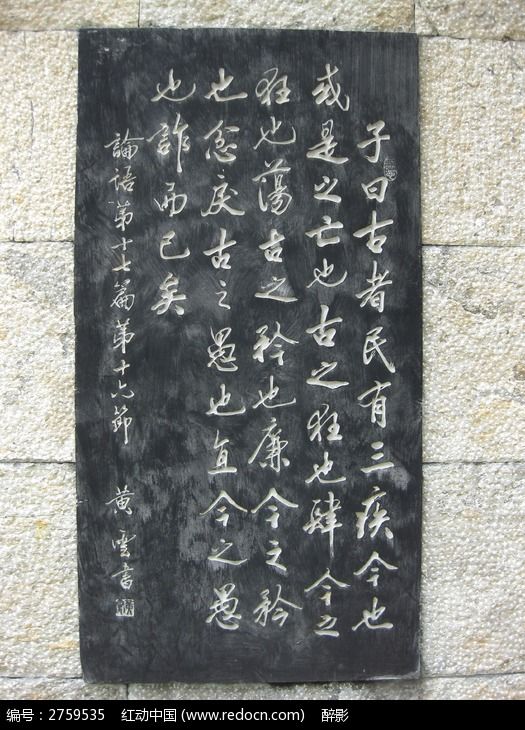 子曰古者民有三疾今也
或是之亡也古之狂也肆今之
狂也蕩古之矜也廉今之矜
也忿戾古之愚也直今之愚
也詐而已矣
論语第十七篇第十六節 黄雲書
编号：2759535 红动中国 (www.redocn.com) 醉影